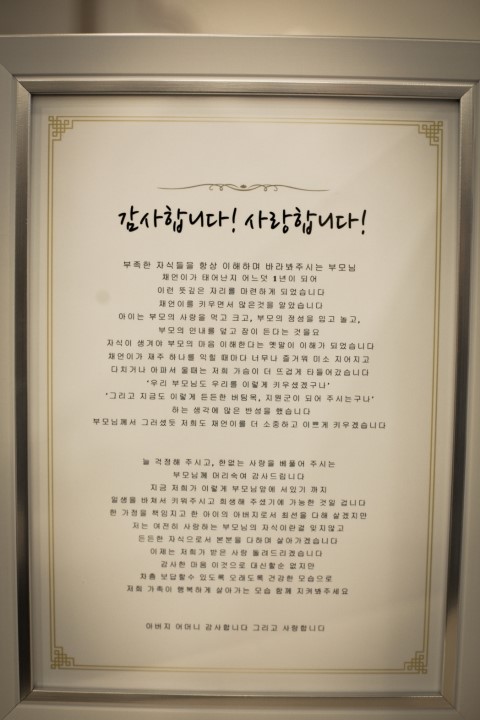 감사합니다! 사랑합니다!
부족한 자식들을 항상 이해하며 바라봐주시는 부모님
채언이가 태어난지 어느덧 1년이 되어
이런 뜻깊은 자리를 마련하게 되었습니다
채언이를 키우면서 많은것을 알았습니다
아이는 부모의 사랑을 먹고 크고, 부모의 정성을 입고 놀고,
부모의 인내를 덮고 잠이 든다는 것을요
자식이 생겨야 부모의 마음 이해한다는 옛말이 이해가 되었습니다
채언이가 재주 하나를 익힐 때마다 너무나 즐거워 미소 지어지고
다치거나 아파서 울때는 저희 가슴이 더 뜨겁게 타들어갔습니다
'우리 부모님도 우리를 이렇게 키우셨겠구나'
'그리고 지금도 이렇게 든든한 버팀목, 지원군이 되어 주시는구나'
하는 생각에 많은 반성을 했습니다
부모님께서 그러셨듯 저희도 채언이를 더 소중하고 이쁘게 키우겠습니다
늘 걱정해 주시고, 한없는 사랑을 베풀어 주시는
부모님께 머리숙여 감사드립니다
지금 저희가 이렇게 부모님앞에 서있기 까지
일생을 바쳐서 키워주시고 희생해 주셨기에 가능한 것일 겁니다
한 가정을 책임지고 한 아이의 아버지로서 최선을 다해 살겠지만
저는 여전히 사랑하는 부모님의 자식이란걸 잊지않고
든든한 자식으로서 본분을 다하며 살아가겠습니다
이제는 저희가 받은 사랑 돌려드리겠습니다
감사한 마음 이것으로 대신할순 없지만
차츰 보답할수 있도록 오래도록 건강한 모습으로
저희 가족이 행복하게 살아가는 모습 함께 지켜봐주세요
아버지 어머니 감사합니다 그리고 사랑합니다